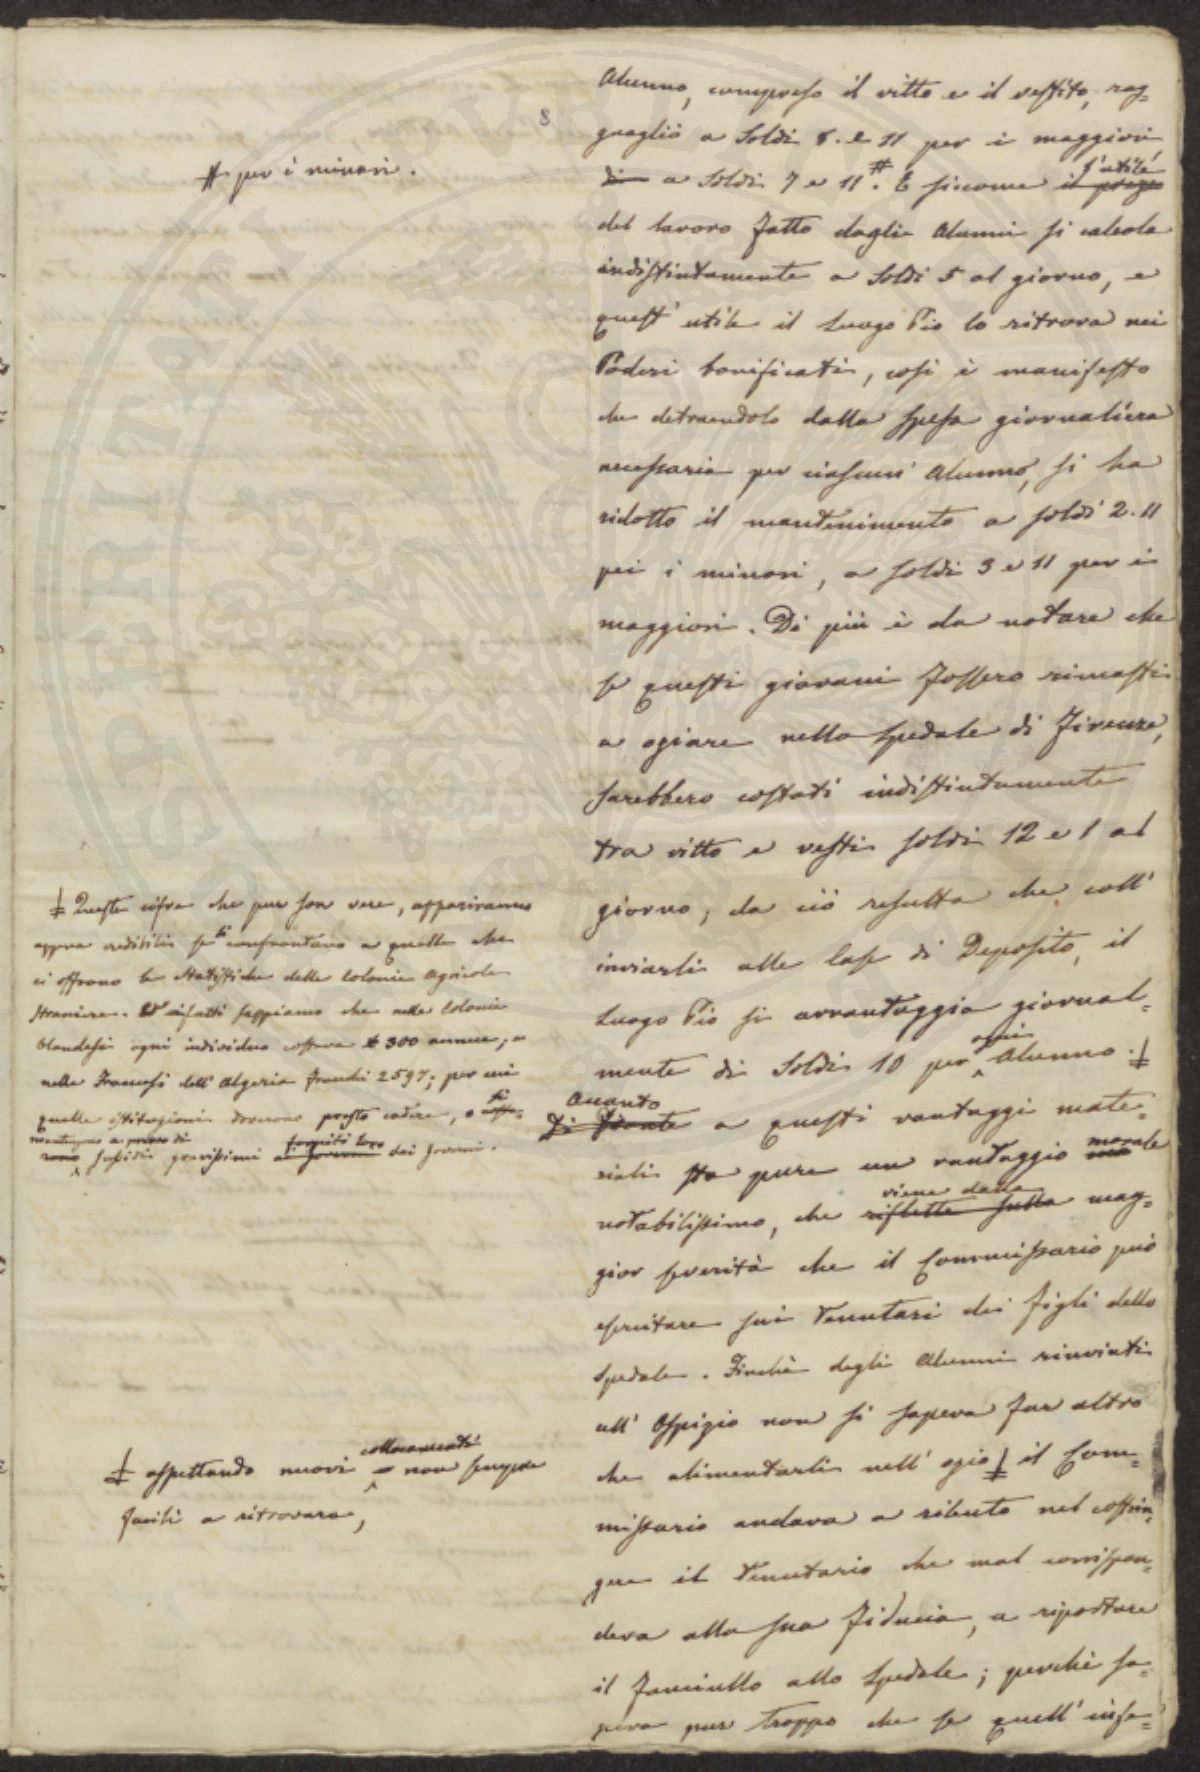 8
Alunno, compreso il vitto e il vestito, rag=
guagliò a Soldi 8. e 11 per i maggiori,
di a Soldi 7 e 11 #. E siccome il prezzo l'utile
del lavoro fatto dagli Alunni si calcola
indistintamente a Soldi 5 al giorno, e
quest' utile il Luogo Pio lo ritrova nei
Poderi bonificati, così è manifesto
che detraendolo dalla spesa giornaliera
necessaria per ciascun' Alunno, si ha
ridotto il mantenimento a soldi 2.11
pei i minori, a soldi 3 e 11 per i
maggiori. Di più è da notare che
se questi giovani fossero rimasti
a oziare nello spedale di Firenze,
sarebbero costati indistintamente
tra vitto e vesti soldi 12 e 1 al
giorno; da ciò resulta che coll'
inviarli alle Case di Deposito, il
Luogo Pio si avvantaggia giornal=
mente di Soldi 10 per ogni Alunno. ‡
Di fronte Quanto a questi vantaggi mate=
riali sta pure un vantaggio morale
notabilissimo, che riflette sulla viene dalla mag=
gior severità che il Commissario può
esercitare sui Tenutari dei figli dello
spedale. Finchè degli Alunni rinviati
all' Ospizio non si sapeva far altro
che alimentarli nell' ozio ‡ il Com=
missario andava a rilento nel costrin=
gere il Tenutario che mal corrispon=
deva alla sua fiducia, a riportare
il fanciullo allo Spedale; perchè sa=
peva pur troppo che se quell' infe=
# per i minori.
‡ Queste cifre che pur son vere, appariranno
appena credibili se si confrontano a quelle che
ci offrono le Statistiche delle Colonie Agricole
straniere. Ed infatti sappiamo che nelle Colonie
Olandesi ogni individuo costava £ 300 annue; e
nelle Francesi dell' Algeria franchi 2597; per cui
quelle istituzioni doverono presto cadere, o si
mantengono a prezzo di sussidii gravissimi a Governi forniti loro dai Governi.
‡ aspettando nuovi collocamenti e non sempre
facili a ritrovare,